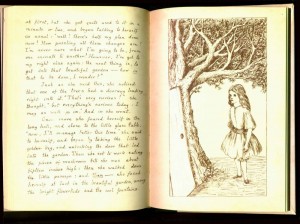 at first, but she got used to it in a
minute or two, and began talking to herself
as usual: "well! there's half my plan done
now! How puzzling all these changes are!
I'm never sure what I'm going to be, from
one minute to another! However, I've got to
my right size again: the next thing is, to
get into that beautiful garden — how is
that to be done, I wonder?"
Just as she said this, she noticed
that one of the trees had a doorway leading
right into it. "That's very curious!" she
thought, "but everything's curious today: I
may as well go in." And in she went.
Once more she found herself in the
long hall, and close to the little glass table:
"now, I'll manage better this time" she said
to herself, and began by taking the little
golden key, and unlocking the door that led
into the garden. Then she set to work eating
the pieces of mushroom till she was about
fifteen inches high: then she walked down
the little passage: and then — she found
herself at last in the beautiful garden among
the bright flowerbeds and the cool fountains.